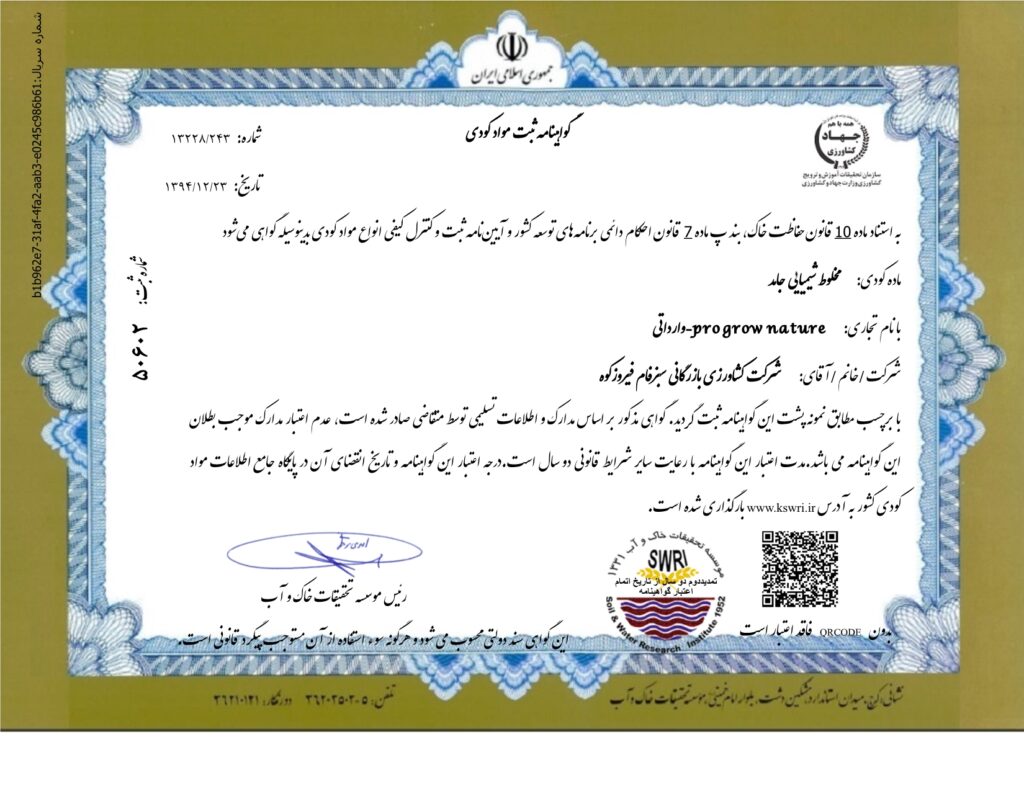 شماره سریال:b1b962e7-31af-4fa2-aab3-e0245c986b61
جمهوری اسلامی ایران
همه با هم
جهاد
کشاورزی
سازمان تحقیقات آموزش و ترویج
کشاورزی وزارت جهاد و کشاورزی
گواهینامه ثبت مواد کودی
شماره: ۱۳۲۲۸/۲۴۳
تاریخ: ۱۳۹۴/۱۲/۲۳
شماره ثبت: ۵۰۶۰۲
به استناد ماده 10 قانون حفاظت خاک، بند پ ماده 7 قانون احکام دائمی برنامه های توسعه کشور و آیین نامه ثبت و کنترل کیفی انواع مواد کودی بدینوسیله گواهی می شود
ماده کودی: مخلوط شیمیایی جامد
با نام تجاری: pro grow nature-وارداتی
شرکت / خانم / آقای: شرکت کشاورزی بازرگانی سبزفام فیروزکوه
با برچسب مطابق نمونه پشت این گواهینامه ثبت گردید. گواهی مذکور بر اساس مدارک و اطلاعات تسلیمی توسط متقاضی صادر شده است، عدم اعتبار مدارک موجب بطلان
این گواهینامه می باشد.مدت اعتبار این گواهینامه با رعایت سایر شرایط قانونی دو سال است.درجه اعتبار این گواهینامه و تاریخ انقضای آن در پایگاه جامع اطلاعات مواد
کودی کشور به آدرس www.kswri.ir بارگذاری شده است.
رئیس موسسه تحقیقات خاک و آب
موسسه تحقیقات خاک و آب ۱۳۳۱
SWRI
تمدیددوم دو سال از تاریخ اتمام
اعتبار گواهینامه
Soil & Water Research Institute 1952
بدون QRCODE فاقد اعتبار است
این گواهی سند دولتی محسوب می شود و هرگونه سوء استفاده از آن مستوجب پیگرد قانونی است.
نشانی:کرج، میدان استاندارد،مشکین دشت، بلوار امام خمینی، موسسه تحقیقات خاک و آب
تلفن: ۵-۳۶۲۰۳۵۰۲ دورنگار: ۳۶۲۱۰۱۲۱